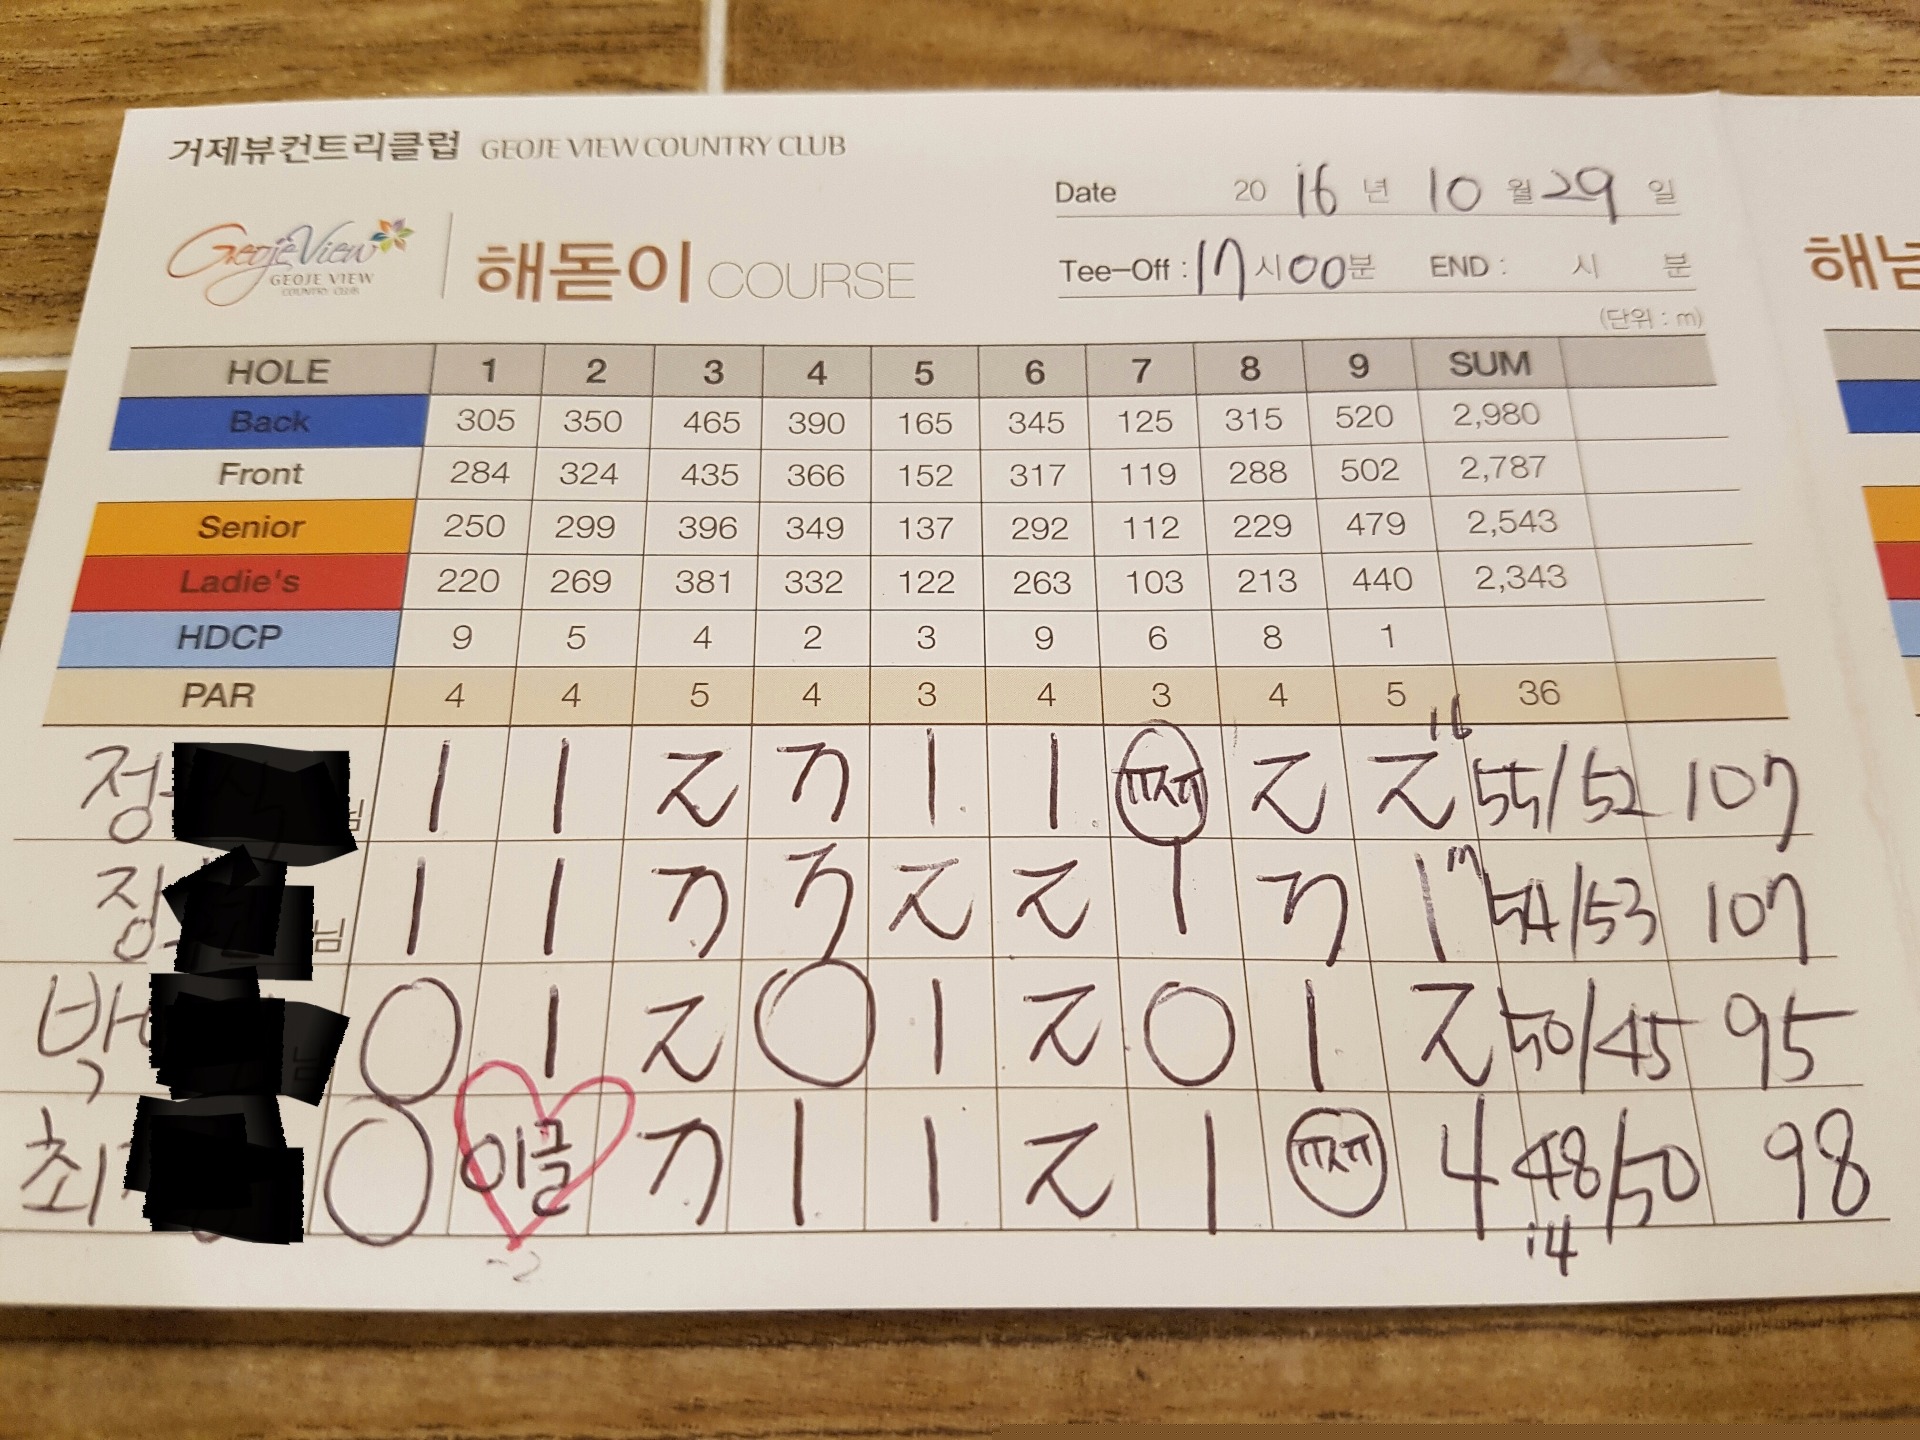 거제뷰컨트리클럽 GEOJE VIEW COUNTRY CLUB
Date 2016년 10월 29일
GeojeView
GEOJE VIEW
COUNTRY CLUB
해돋이 COURSE
Tee-Off : 17시00분 END : 시 분
(단위 : m)
HOLE 1 2 3 4 5 6 7 8 9 SUM
Back 305 350 465 390 165 345 125 315 520 2,980
Front 284 324 435 366 152 317 119 288 502 2,787
Senior 250 299 396 349 137 292 112 229 479 2,543
Ladie's 220 269 381 332 122 263 103 213 440 2,343
HDCP 9 5 4 2 3 9 6 8 1
PAR 4 4 5 4 3 4 3 4 5 36
정 님 1 1 2 3 1 1 2 2 16 55/52 107
정 님 1 1 3 3 2 2 1 3 1 17 54/53 107
박 님 0 1 2 0 1 2 0 1 2 50/45 95
최 0 이글 3 1 1 2 1 4 48/50 98
-2 14
해넘